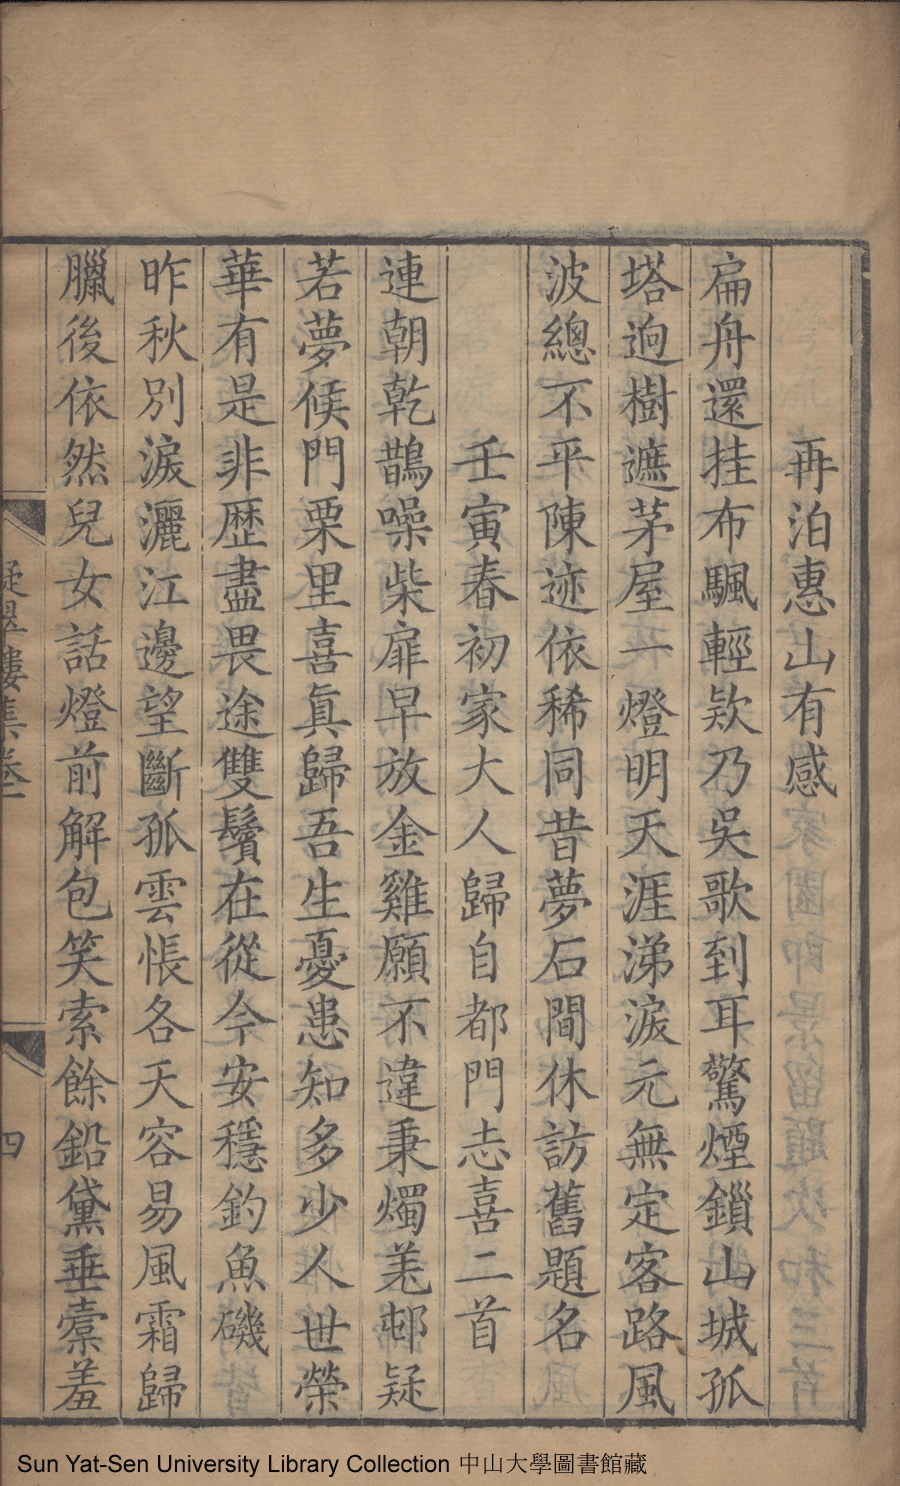 再泊惠山有感
扁舟還挂布颿輕欵乃吳歌到耳驚煙鎻山城孤
塔逈樹遮茅屋一燈明天涯涕淚元無定客路風
波總不平陳迹依稀同昔夢石間休訪舊題名
壬寅春初家大人歸自都門志喜二首
連朝乾鵲噪柴扉早放金雞願不違秉燭羗邨疑
若夢候門栗里喜眞歸吾生憂患知多少人世榮
華有是非歴盡畏途雙鬢在從今安穩釣魚磯
昨秋別淚灑江邊望斷孤雲悵各天容易風霜歸
臘後依然兒女話燈前解包笑索餘鉛黛垂橐羞
凝翠樓集卷二
四
Sun Yat-Sen University Library Collection 中山大學圖書館藏